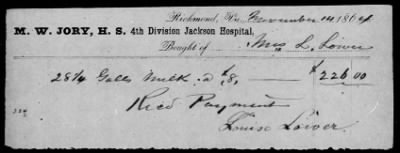 Richmond, Va. November 14 1864
M. W. JORY, H. S. 4th Division Jackson Hospital,
Bought of Mrs L. Lower
28¼ Galls Milk a $8, — $226.00
Recd Payment
Louise Lower